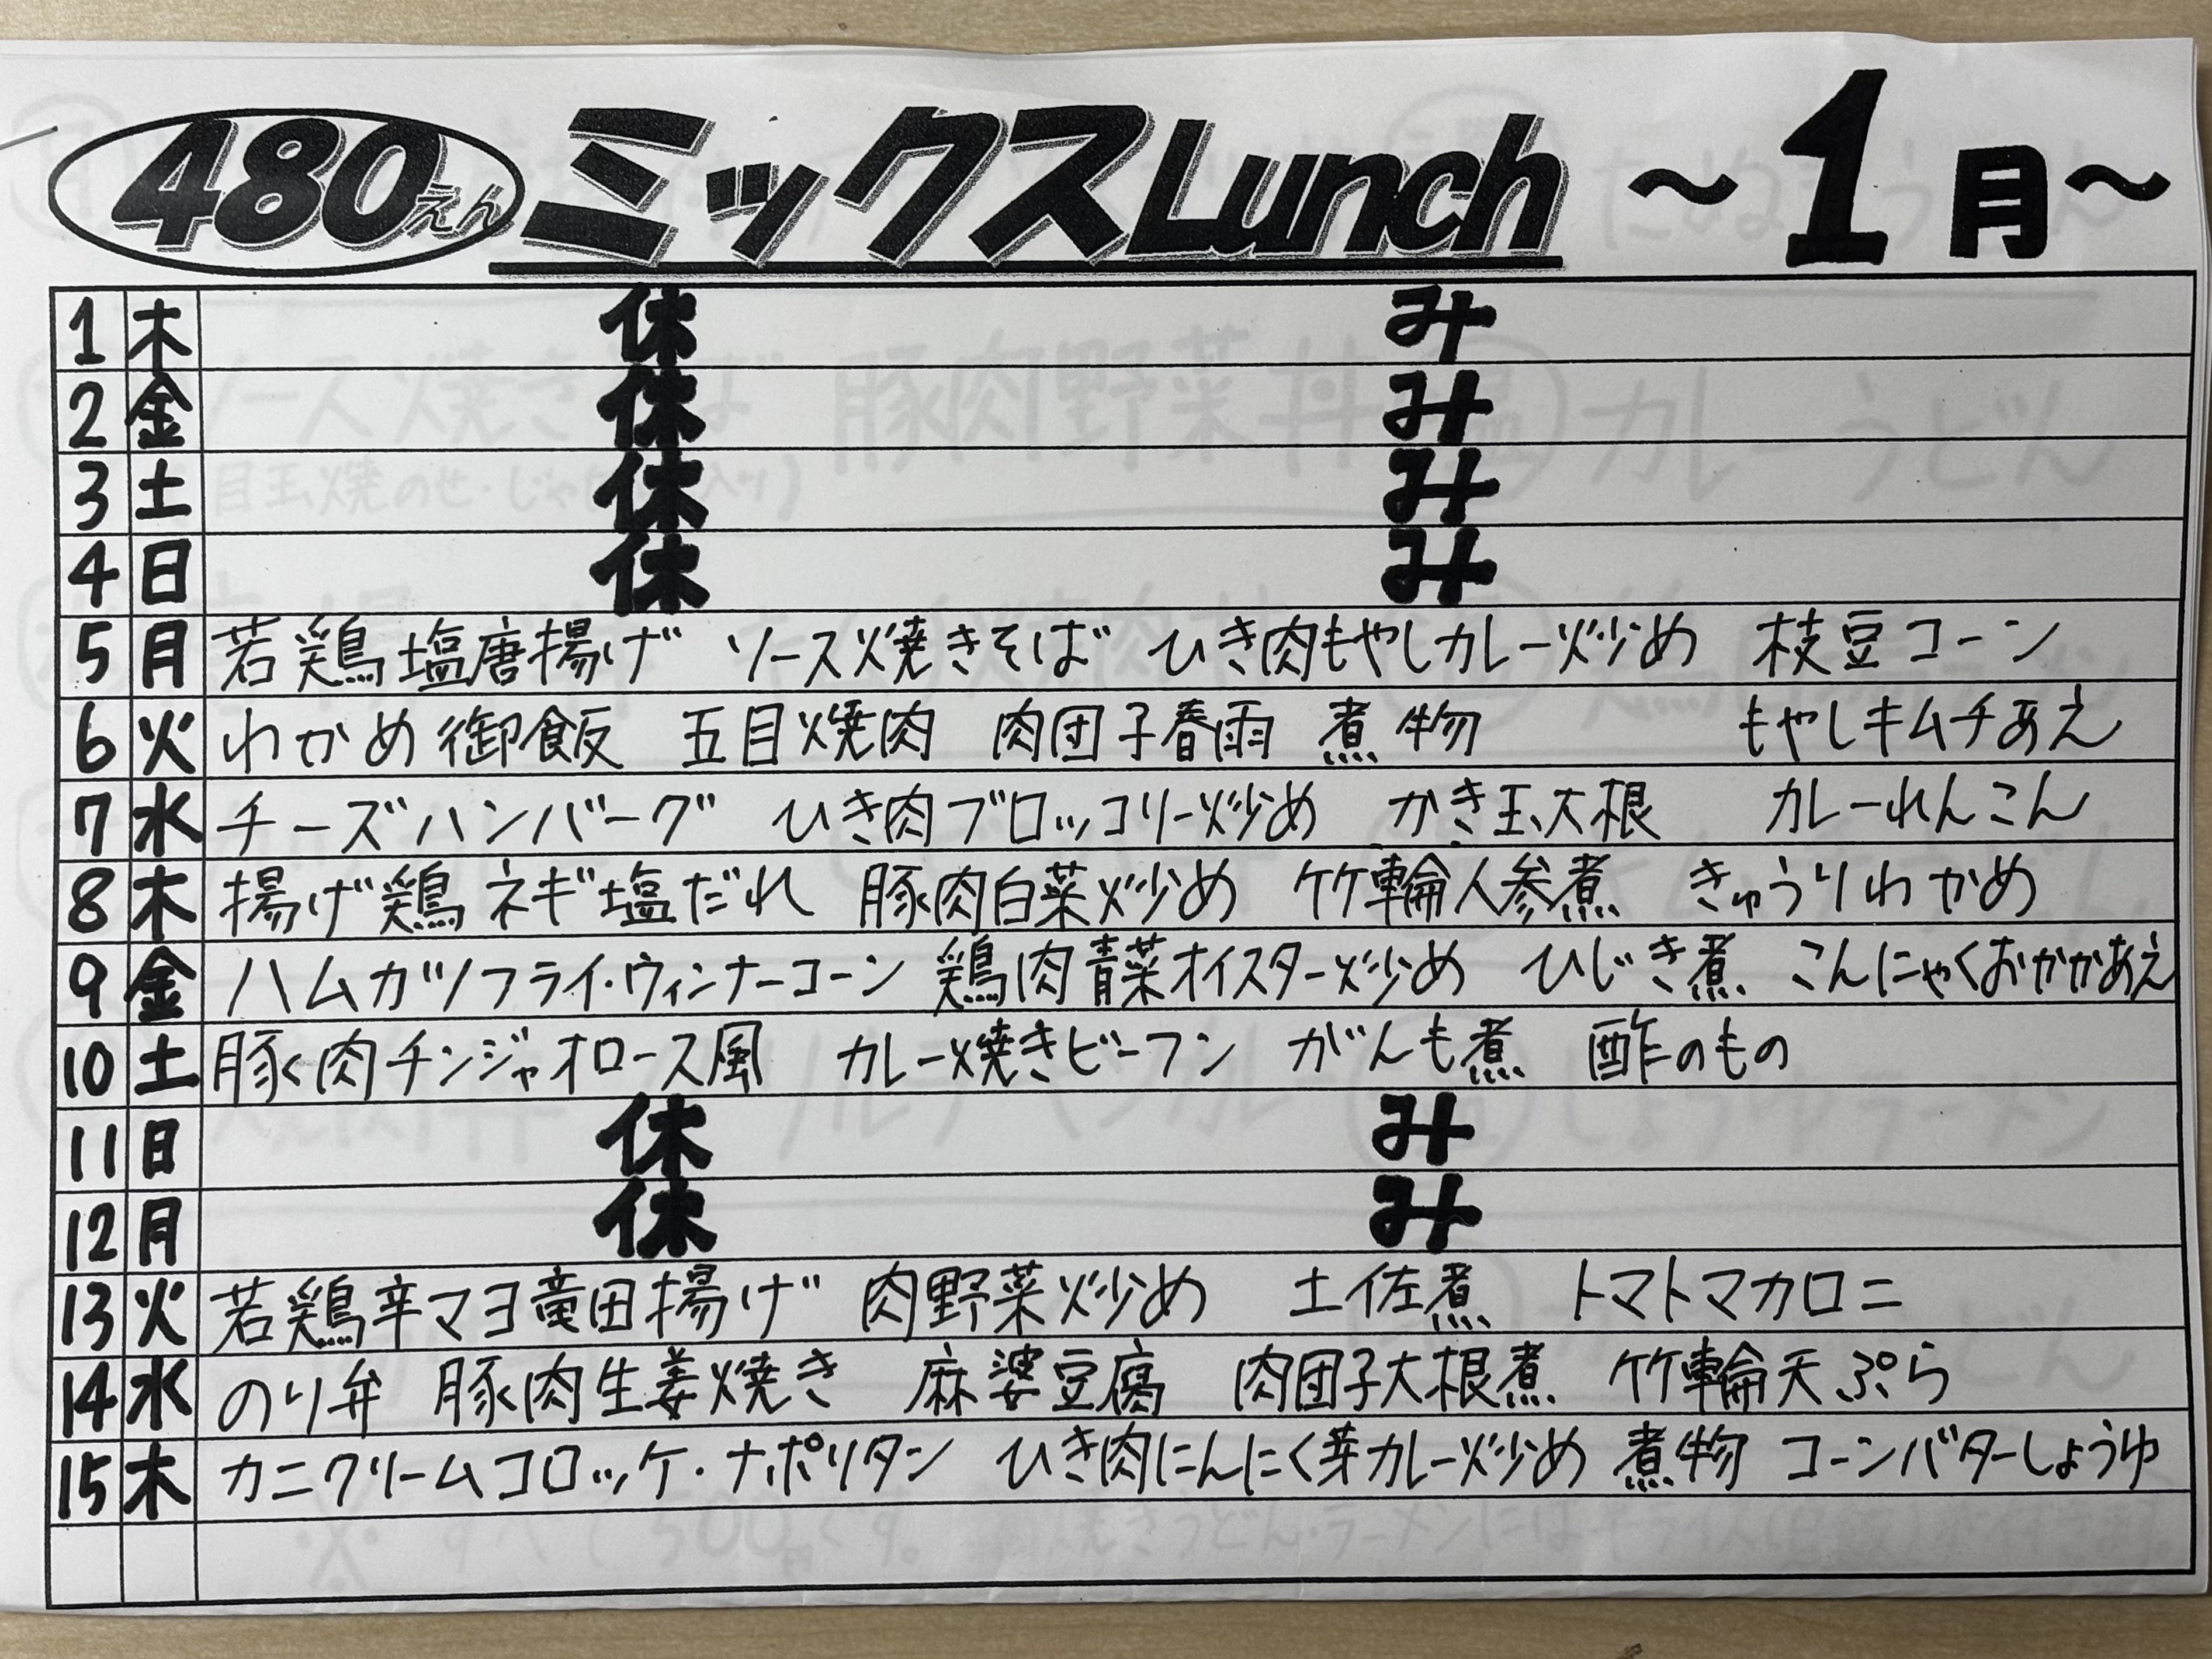 480えん ミックスLunch ～1月～
1 木 休 み
2 金 休 み
3 土 休 み
4 日 休 み
5 月 若鶏塩唐揚げ ソース焼きそば ひき肉もやしカレー炒め 枝豆コーン
6 火 わかめ御飯 五目焼肉 肉団子春雨 煮物 もやしキムチあえ
7 水 チーズハンバーグ ひき肉ブロッコリー炒め かき玉大根 カレーれんこん
8 木 揚げ鶏ネギ塩だれ 豚肉白菜炒め 竹輪人参煮 きゅうりわかめ
9 金 ハムカツフライ・ウィンナーコーン 鶏肉青菜オイスター炒め ひじき煮 こんにゃくおかかあえ
10 土 豚肉チンジャオロース風 カレー焼きビーフン がんも煮 酢のもの
11 日 休 み
12 月 休 み
13 火 若鶏辛マヨ竜田揚げ 肉野菜炒め 土佐煮 トマトマカロニ
14 水 のり弁 豚肉生姜焼き 麻婆豆腐 肉団子大根煮 竹輪天ぷら
15 木 カニクリームコロッケ・ナポリタン ひき肉にんにく芽カレー炒め 煮物 コーンバターしょうゆ